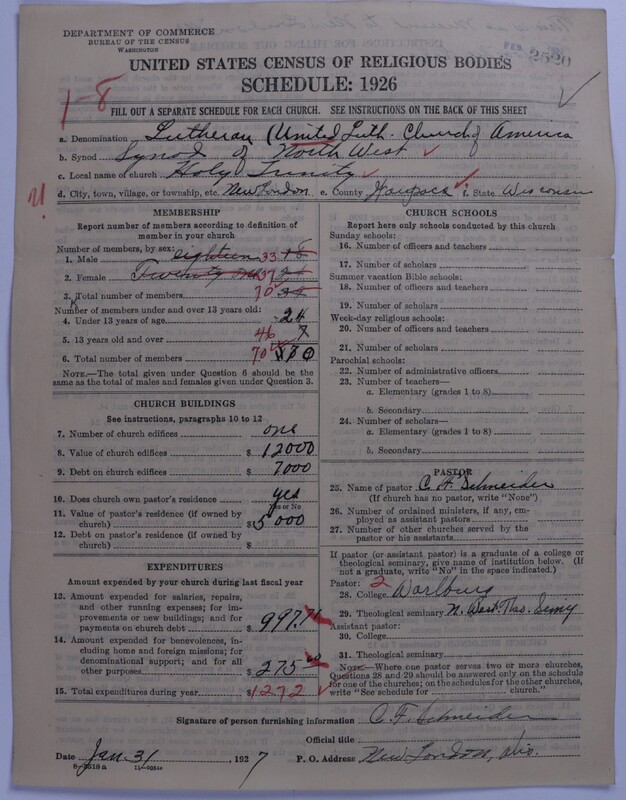 DEPARTMENT OF COMMERCE
BUREAU OF THE CENSUS
WASHINGTON
2520
UNITED STATES CENSUS OF RELIGIOUS BODIES
SCHEDULE: 1926
1-8
FILL OUT A SEPARATE SCHEDULE FOR EACH CHURCH. SEE INSTRUCTIONS ON THE BACK OF THIS SHEET
a. Denomination Lutheran (United Luth. Church of America
b. Synod Synod of North West
c. Local name of church Holy Trinity
d. City, town, village, or township, etc. New London e. County Waupaca f. State Wisconsin
MEMBERSHIP
Report number of members according to definition of member in your church
Number of members, by sex:
1. Male eighteen 33 18
2. Female 37
3. Total number of members 70
Number of members under and over 13 years old:
4. Under 13 years of age 24
5. 13 years old and over 46
6. Total number of members 70
NOTE.—The total given under Question 6 should be the same as the total of males and females given under Question 3.
CHURCH BUILDINGS
See instructions, paragraphs 10 to 12
7. Number of church edifices one
8. Value of church edifices $ 12000
9. Debt on church edifices $ 7000
10. Does church own pastor's residence yes
Yes or No
11. Value of pastor's residence (if owned by church) $ 5000
12. Debt on pastor's residence (if owned by church) $
EXPENDITURES
Amount expended by your church during last fiscal year
13. Amount expended for salaries, repairs, and other running expenses; for improvements or new buildings; and for payments on church debt $ 997.71
14. Amount expended for benevolences, including home and foreign missions; for denominational support; and for all other purposes $ 275
15. Total expenditures during year $ 1272
CHURCH SCHOOLS
Report here only schools conducted by this church
Sunday schools:
16. Number of officers and teachers
17. Number of scholars
Summer vacation Bible schools:
18. Number of officers and teachers
19. Number of scholars
Week-day religious schools:
20. Number of officers and teachers
21. Number of scholars
Parochial schools:
22. Number of administrative officers
23. Number of teachers—
a. Elementary (grades 1 to 8)
b. Secondary
24. Number of scholars—
a. Elementary (grades 1 to 8)
b. Secondary
PASTOR
25. Name of pastor C. F. Schneider
(If church has no pastor, write "None")
26. Number of ordained ministers, if any, employed as assistant pastors
27. Number of other churches served by the pastor or his assistants
If pastor (or assistant pastor) is a graduate of a college or theological seminary, give name of institution below. (If not a graduate, write "No" in the space indicated.)
Pastor: 2
28. College Wartburg
29. Theological seminary N. West. Theo. Seminy
Assistant pastor:
30. College
31. Theological seminary
NOTE.—Where one pastor serves two or more churches, Questions 28 and 29 should be answered only on the schedule for one of the churches; on the schedules for the other churches, write "See schedule for church."
Signature of person furnishing information C. F. Schneider
Official title
Date Jan. 31, 1927 P. O. Address New London, Wis.
8-5518a 11-9054